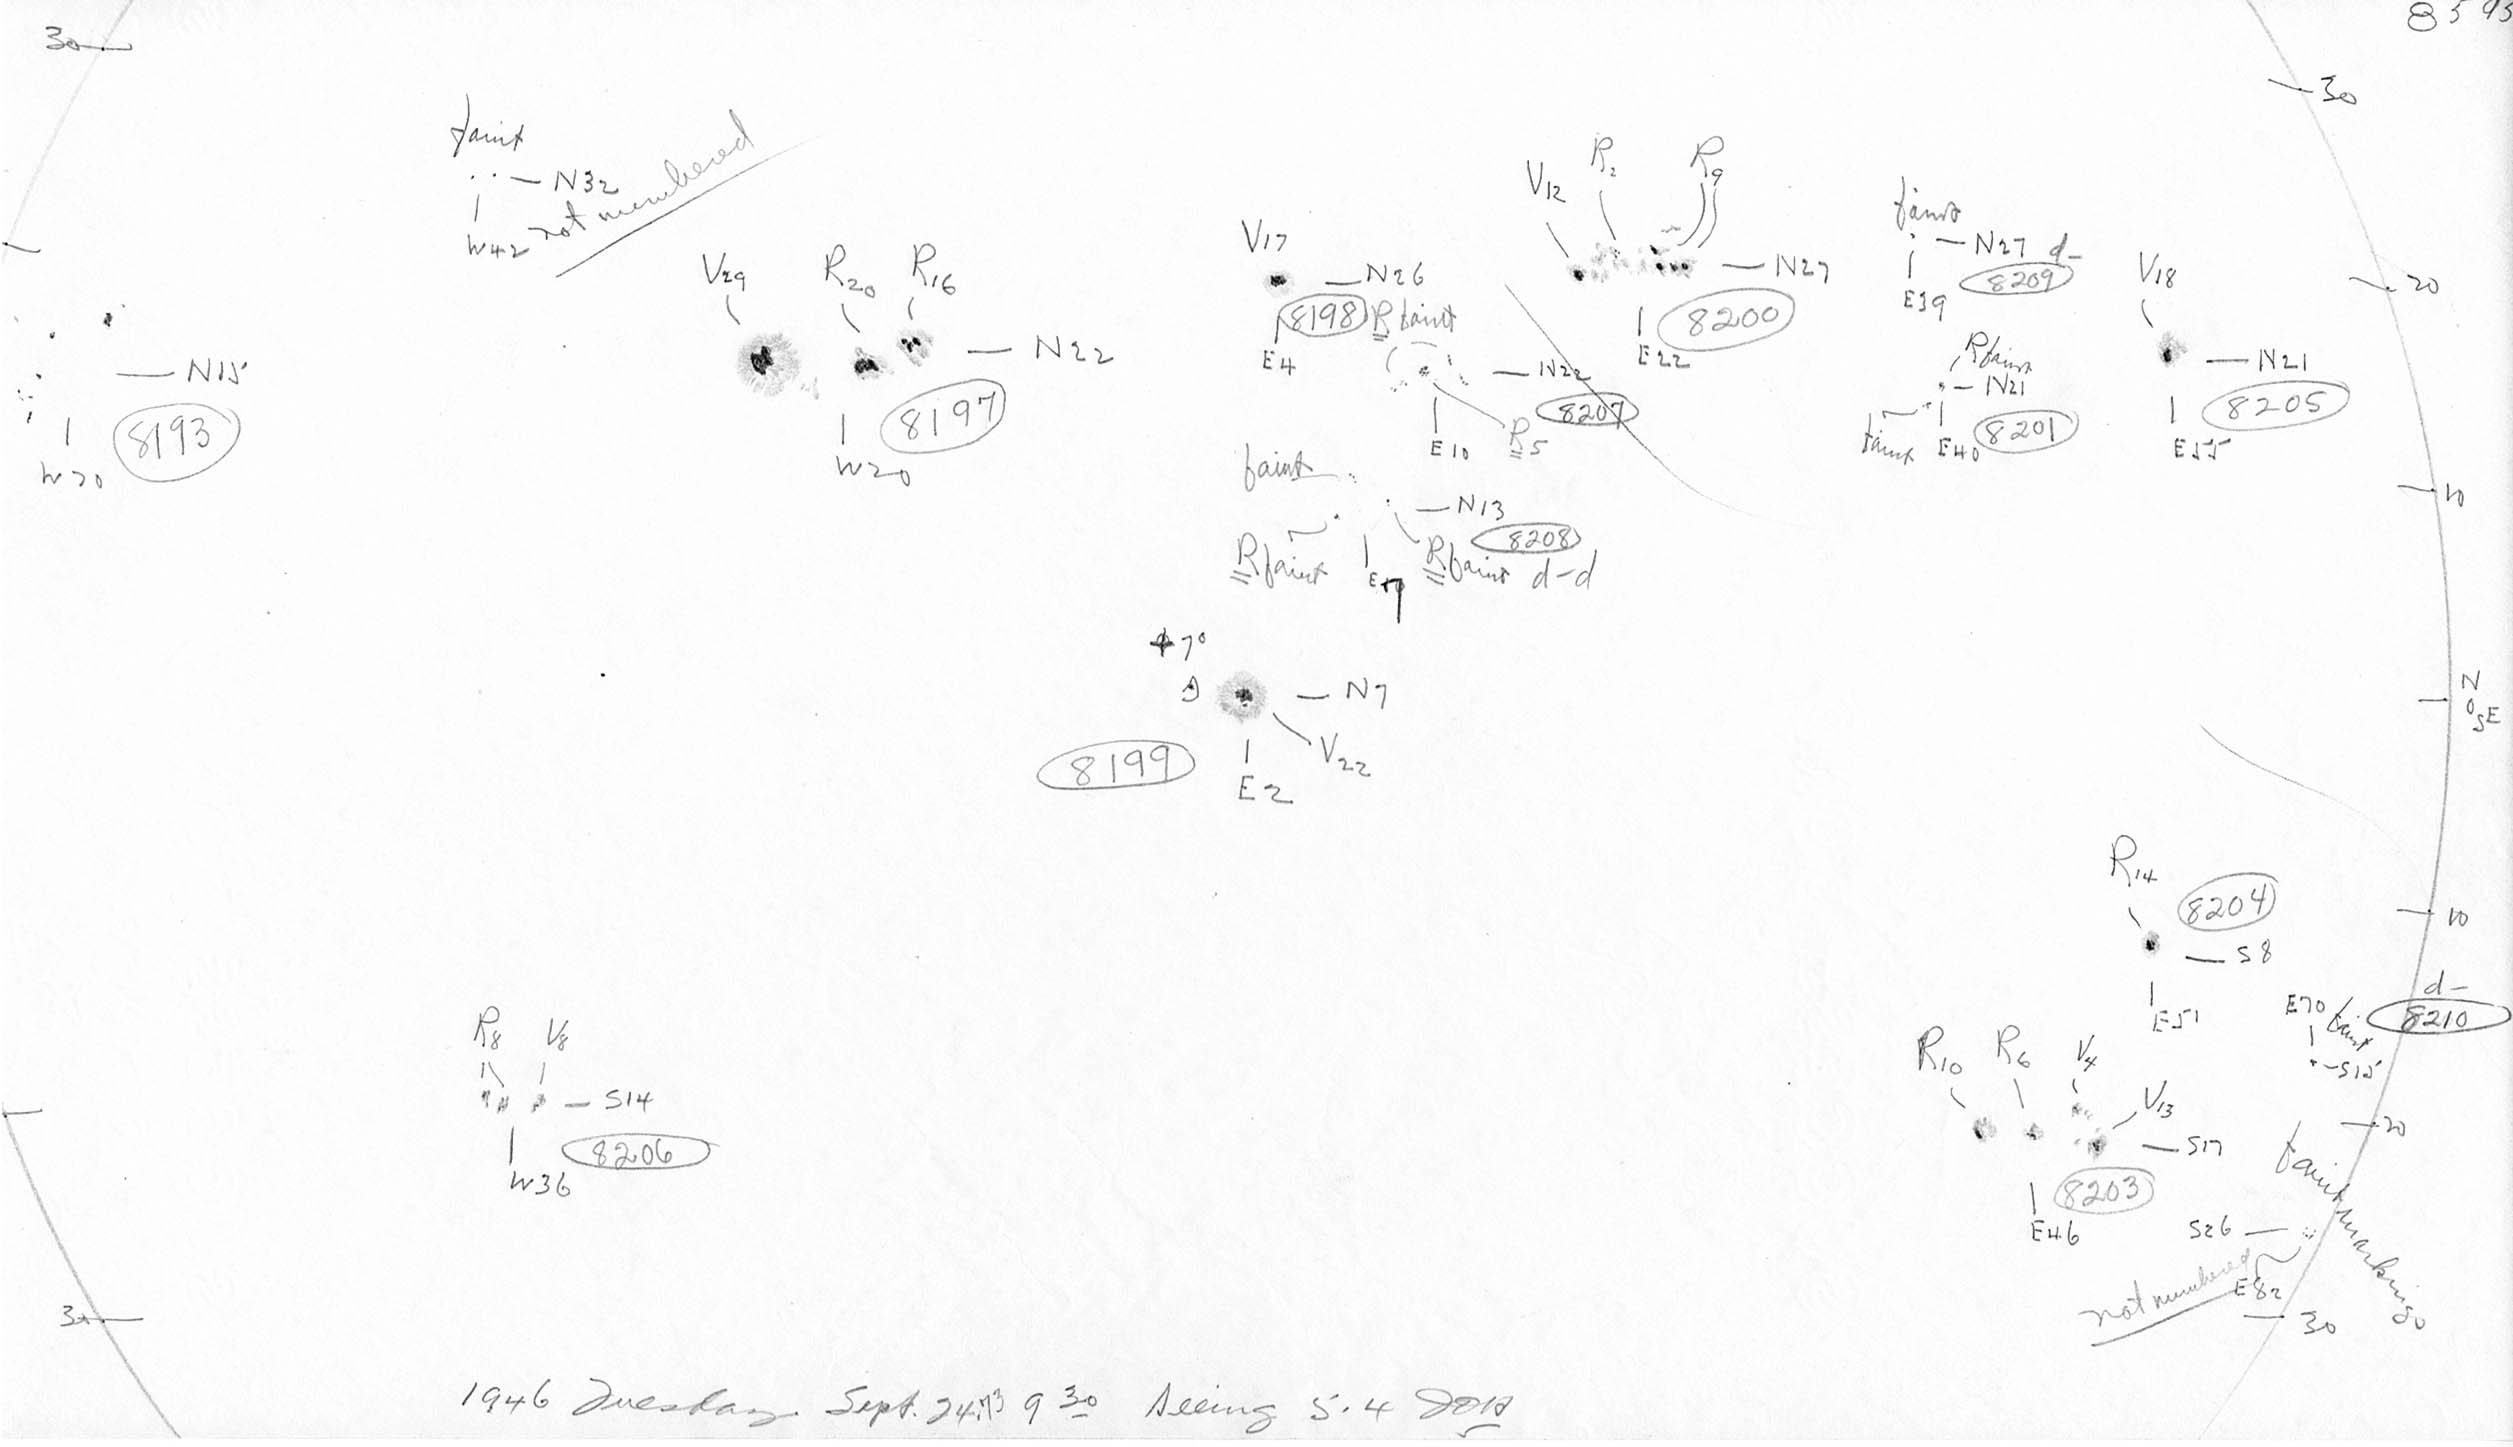 30
8593
30
faint
N32
W42 not numbered
V12
R2
R9
V17
N26
8198
R faint
E4
N27
8200
E22
faint
N27 d-
8209
E39
V18
20
V29
R20
R16
N22
8197
W20
N15
8193
W70
N22
8207
E10
R5
R faint
N21
faint
E40
8201
N21
8205
E55
10
faint
N13
8208
R faint
R faint d-d
+7°
N7
V22
8199
E2
N
0
S E
R14
8204
S8
E51
10
d-
8210
E70
faint
S15
R8
V8
S14
8206
W36
R10
R6
V4
V13
S17
8203
E46
20
faint markings
S26
not numbered
E82
30
30
1946 Tuesday Sept. 24.73 9 30 Seeing 5.4